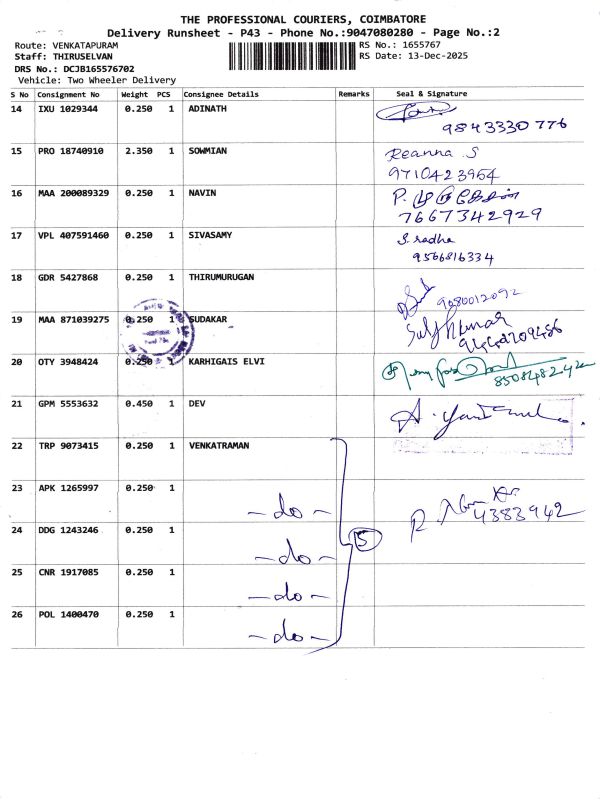 THE PROFESSIONAL COURIERS, COIMBATORE
Delivery Runsheet - P43 - Phone No.:9047080280 - Page No.:2
Route: VENKATAPURAM
RS No.: 1655767
Staff: THIRUSELVAN
RS Date: 13-Dec-2025
DRS No.: DCJB165576702
Vehicle: Two Wheeler Delivery
S No Consignment No Weight PCS Consignee Details Remarks Seal & Signature
14 IXU 1029344 0.250 1 ADINATH
9843330776
15 PRO 18740910 2.350 1 SOWMIAN Reanna S
9710423954
16 MAA 200089329 0.250 1 NAVIN P.
7667342929
17 VPL 407591460 0.250 1 SIVASAMY S. radha
9566816334
18 GDR 5427868 0.250 1 THIRUMURUGAN
9080012092
19 MAA 871039275 0.250 1 SUDAKAR
20 OTY 3948424 0.250 1 KARHIGAIS ELVI
21 GPM 5553632 0.450 1 DEV
22 TRP 9073415 0.250 1 VENKATRAMAN
23 APK 1265997 0.250 1 - do -
4383942
24 DDG 1243246 0.250 1 - do - 5
25 CNR 1917085 0.250 1 - do -
26 POL 1400470 0.250 1 - do -